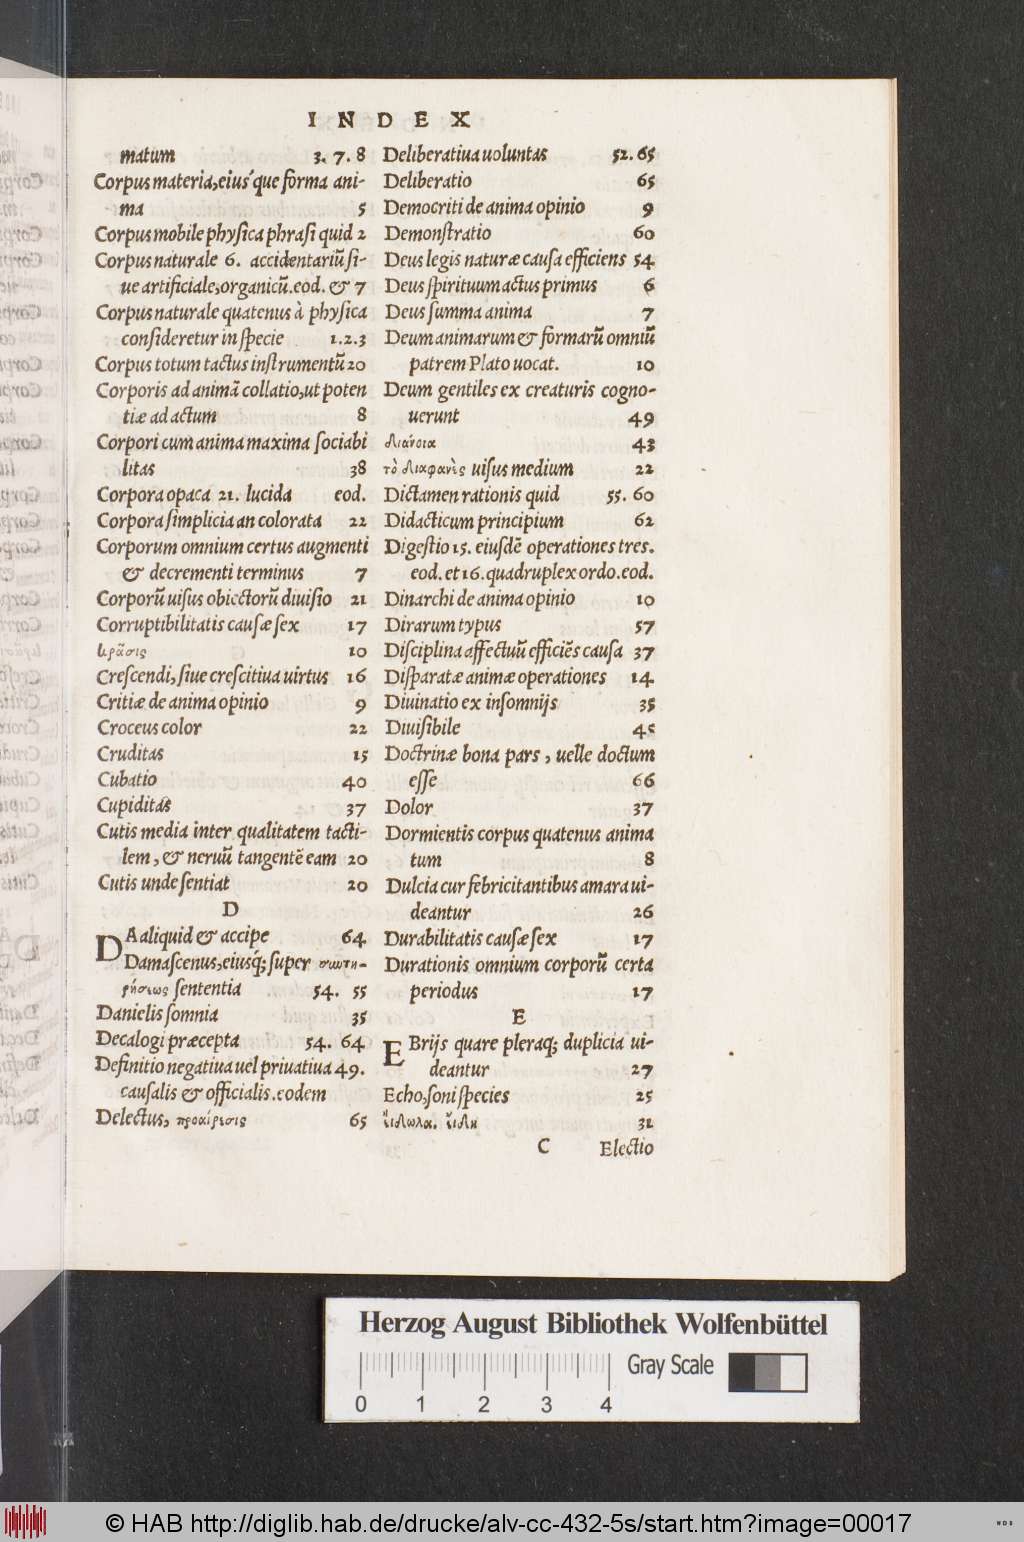 INDEX
matum 3. 7. 8
Corpus materia, eius´que forma ani-
ma 5
Corpus mobile physica phrasi quid 2
Corpus naturale 6. accidentariũ si-
ue artificiale, organicũ. eod. & 7
Corpus naturale quatenus à physica
consideretur in specie 1. 2. 3
Corpus totum tactus instrumentũ 20
Corporis ad animã collatio, ut poten
tiæ ad actum 8
Corpori cum anima maxima sociabi
litas 38
Corpora opaca 21. lucida eod.
Corpora simplicia an colorata 22
Corporum omnium certus augmenti
& decrementi terminus 7
Corporũ uisus obiectorũ diuisio 21
Corruptibilitatis causæ sex 17
κρᾶσις 10
Crescendi, siue crescitiua uirtus 16
Critiæ de anima opinio 9
Croceus color 22
Cruditas 15
Cubatio 40
Cupiditas 37
Cutis media inter qualitatem tacti-
lem, & neruũ tangentẽ eam 20
Cutis unde sentiat 20
D
DA aliquid & accipe 64
Damascenus, eiusq́; super συντη-
ρήσεως sententia 54. 55
Danielis somnia 35
Decalogi præcepta 54. 64
Definitio negatiua uel priuatiua 49.
causalis & officialis. eodem
Delectus, προαίρεσις 65
Deliberatiua uoluntas 52. 65
Deliberatio 65
Democriti de anima opinio 9
Demonstratio 60
Deus legis naturæ causa efficiens 54
Deus spirituum actus primus 6
Deus summa anima 7
Deum animarum & formarũ omniũ
patrem Plato uocat. 10
Deum gentiles ex creaturis cogno-
uerunt 49
διάνοια 43
τὸ διαφανὲς uisus medium 22
Dictamen rationis quid 55. 60
Didacticum principium 62
Digestio 15. eiusdẽ operationes tres.
eod. et 16. quadruplex ordo. eod.
Dinarchi de anima opinio 10
Dirarum typus 57
Disciplina affectuũ efficiẽs causa 37
Disparatæ animæ operationes 14
Diuinatio ex insomnijs 35
Diuisibile 45
Doctrinæ bona pars, uelle doctum
esse 66
Dolor 37
Dormientis corpus quatenus anima
tum 8
Dulcia cur febricitantibus amara ui-
deantur 26
Durabilitatis causæ sex 17
Durationis omnium corporũ certa
periodus 17
E
EBrijs quare pleraq; duplicia ui-
deantur 27
Echo, soni species 25
εἴδωλα. εἴδη 31
C Electio
Herzog August Bibliothek Wolfenbüttel
Gray Scale
0 1 2 3 4
© HAB http://diglib.hab.de/drucke/alv-cc-432-5s/start.htm?image=00017